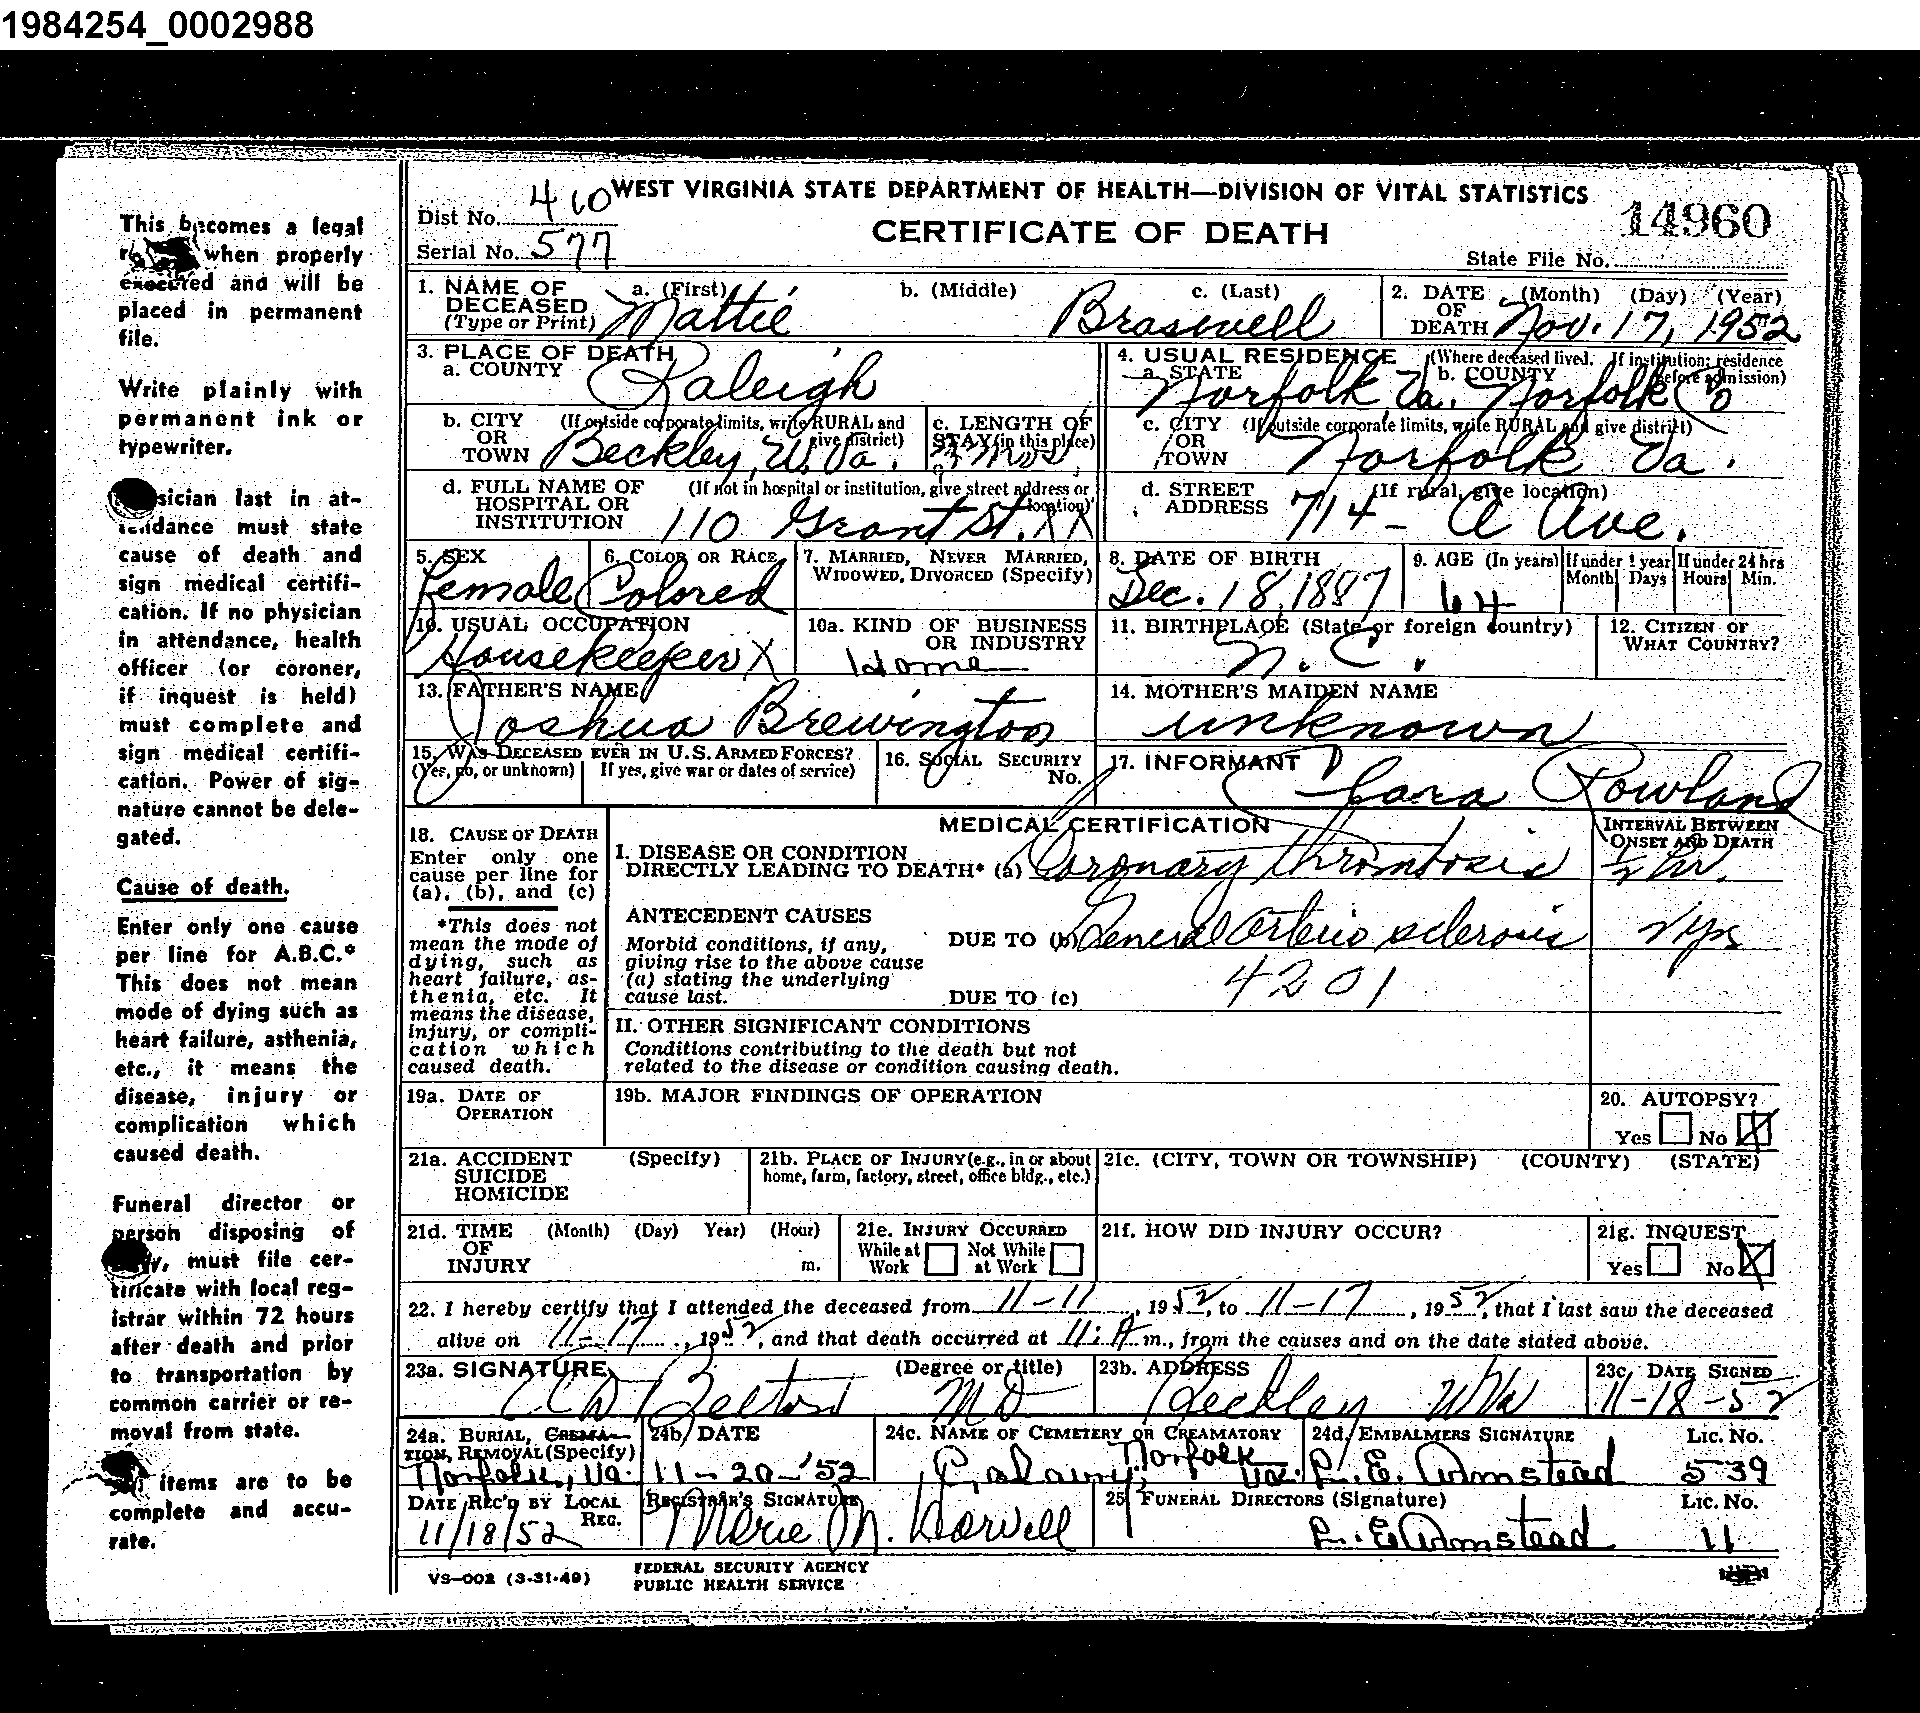 1984254_0002988
This becomes a legal
when properly
executed and will be
placed in permanent
file.
Write plainly with
permanent ink or
typewriter.
sician last in at-
tendance must state
cause of death and
sign medical certifi-
cation. If no physician
in attendance, health
officer (or coroner,
if inquest is held)
must complete and
sign medical certifi-
cation. Power of sig-
nature cannot be dele-
gated.
Cause of death.
Enter only one cause
per line for A.B.C.*
This does not mean
mode of dying such as
heart failure, asthenia,
etc., it means the
disease, injury or
complication which
caused death.
Funeral director or
person disposing of
must file cer-
tificate with local reg-
istrar within 72 hours
after death and prior
to transportation by
common carrier or re-
moval from state.
items are to be
complete and accu-
rate.
WEST VIRGINIA STATE DEPARTMENT OF HEALTH—DIVISION OF VITAL STATISTICS
Dist No. 410
CERTIFICATE OF DEATH
14960
Serial No. 577
State File No.
1. NAME OF DECEASED (Type or Print) a. (First) Mattie b. (Middle) c. (Last) Braswell
2. DATE OF DEATH (Month) (Day) (Year) Nov. 17, 1952
3. PLACE OF DEATH
a. COUNTY Raleigh
4. USUAL RESIDENCE (Where deceased lived. If institution; residence before admission)
a. STATE Norfolk, Va. b. COUNTY Norfolk Co
b. CITY OR TOWN (If outside corporate limits, write RURAL and give district) Beckley, W. Va.
c. LENGTH OF STAY (in this place) mos.
c. CITY OR TOWN (If outside corporate limits, write RURAL and give district) Norfolk Va.
d. FULL NAME OF HOSPITAL OR INSTITUTION (If not in hospital or institution, give street address or location) 110 Grant St. XX
d. STREET ADDRESS (If rural, give location) 714 - A Ave.
5. SEX Female
6. COLOR OR RACE Colored
7. MARRIED, NEVER MARRIED, WIDOWED, DIVORCED (Specify)
8. DATE OF BIRTH Dec. 18, 1887
9. AGE (In years) 64
If under 1 year Month Days
If under 24 hrs Hours Min.
10. USUAL OCCUPATION Housekeeper X
10a. KIND OF BUSINESS OR INDUSTRY Home
11. BIRTHPLACE (State or foreign country) N. C.
12. CITIZEN OF WHAT COUNTRY?
13. FATHER'S NAME Joshua Brewington
14. MOTHER'S MAIDEN NAME unknown
15. WAS DECEASED EVER IN U.S. ARMED FORCES?
(Yes, no, or unknown) If yes, give war or dates of service)
16. SOCIAL SECURITY No.
17. INFORMANT Clara Rowland
MEDICAL CERTIFICATION
INTERVAL BETWEEN ONSET AND DEATH
18. CAUSE OF DEATH
Enter only one
cause per line for
(a), (b), and (c)
*This does not
mean the mode of
dying, such as
heart failure, as-
thenia, etc. It
means the disease,
injury, or compli-
cation which
caused death.
I. DISEASE OR CONDITION
DIRECTLY LEADING TO DEATH* (a) Coronary thrombosis 1/2 hr.
ANTECEDENT CAUSES
Morbid conditions, if any,
giving rise to the above cause
(a) stating the underlying
cause last.
DUE TO (b) General Arterio sclerosis yrs
4201
DUE TO (c)
II. OTHER SIGNIFICANT CONDITIONS
Conditions contributing to the death but not
related to the disease or condition causing death.
19a. DATE OF OPERATION
19b. MAJOR FINDINGS OF OPERATION
20. AUTOPSY?
Yes No X
21a. ACCIDENT SUICIDE HOMICIDE (Specify)
21b. PLACE OF INJURY (e.g., in or about home, farm, factory, street, office bldg., etc.)
21c. (CITY, TOWN OR TOWNSHIP) (COUNTY) (STATE)
21d. TIME OF INJURY (Month) (Day) Year) (Hour) m.
21e. INJURY OCCURRED
While at Work Not While at Work
21f. HOW DID INJURY OCCUR?
21g. INQUEST
Yes No X
22. I hereby certify that I attended the deceased from 11-11, 1952, to 11-17, 1952, that I last saw the deceased
alive on 11-17, 1952, and that death occurred at 11: A m., from the causes and on the date stated above.
23a. SIGNATURE Belton (Degree or title) MD
23b. ADDRESS Beckley WVa
23c. DATE SIGNED 11-18-52
24a. BURIAL, CREMATION, REMOVAL (Specify) Norfolk, Va.
24b. DATE 11-20-'52
24c. NAME OF CEMETERY OR CREAMATORY Calvary, Norfolk Va.
24d. EMBALMERS SIGNATURE R. E. Armstead Lic. No. 539
DATE REC'D BY LOCAL REG. 11/18/52
REGISTRAR'S SIGNATURE Marie M. Harvell
25. FUNERAL DIRECTORS (Signature) R. E. Armstead Lic. No. 11
VS-002 (3-31-49)
FEDERAL SECURITY AGENCY
PUBLIC HEALTH SERVICE